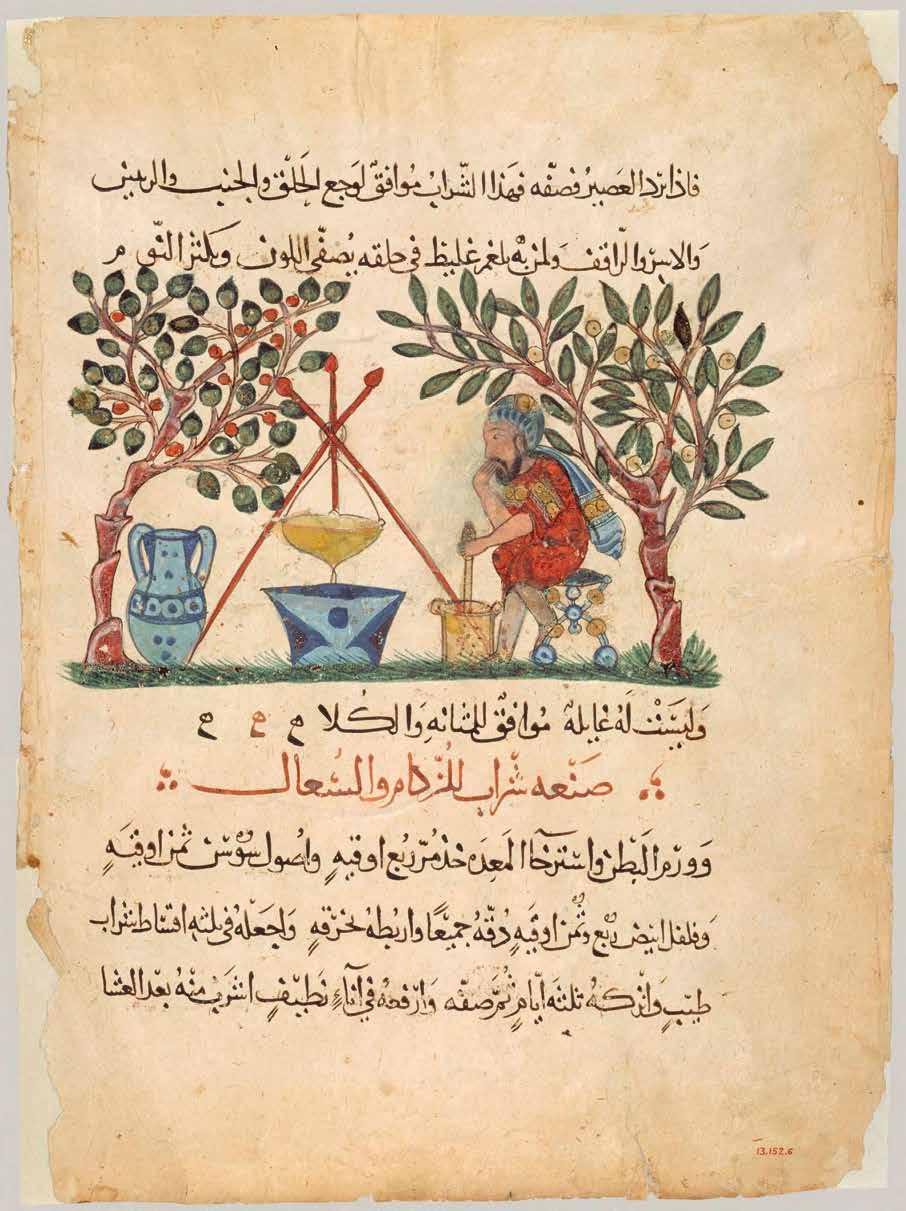 فاذا برد العصير فصفّه فهذا الشّراب مُوافق لوجع الحَلق والجنب والريتين
وَالاسر والرّاقف وَلمن بهْ بلغم غليظ في حلقه يُصفّى اللون ويكثر النّوم
وَليسَتْ لهُ غايلة مُوافقٌ للمثانه وَالكُلا
صَنعه شَراب للزُكام والسُعال
وَوَرم البَطن واسترخا المعدَه خذ مُرّ ربع اوقيهٍ واصُول سُوْسن ثمن اوقيَهٍ
وَفلفل ابيض ربع وَثُمن اوقيَهٍ دُقّهُ جميعًا واربطهُ بخرقهٍ وَاجعَلهُ في ثلثه اقساط شراب
طيّبٍ وَاتركهُ ثلثهَ ايامٍ ثُمّ صَفّه وَارْفعهُ في اناءٍ نظيفٍ اشرَب منهُ بعد العشا
13.152.6